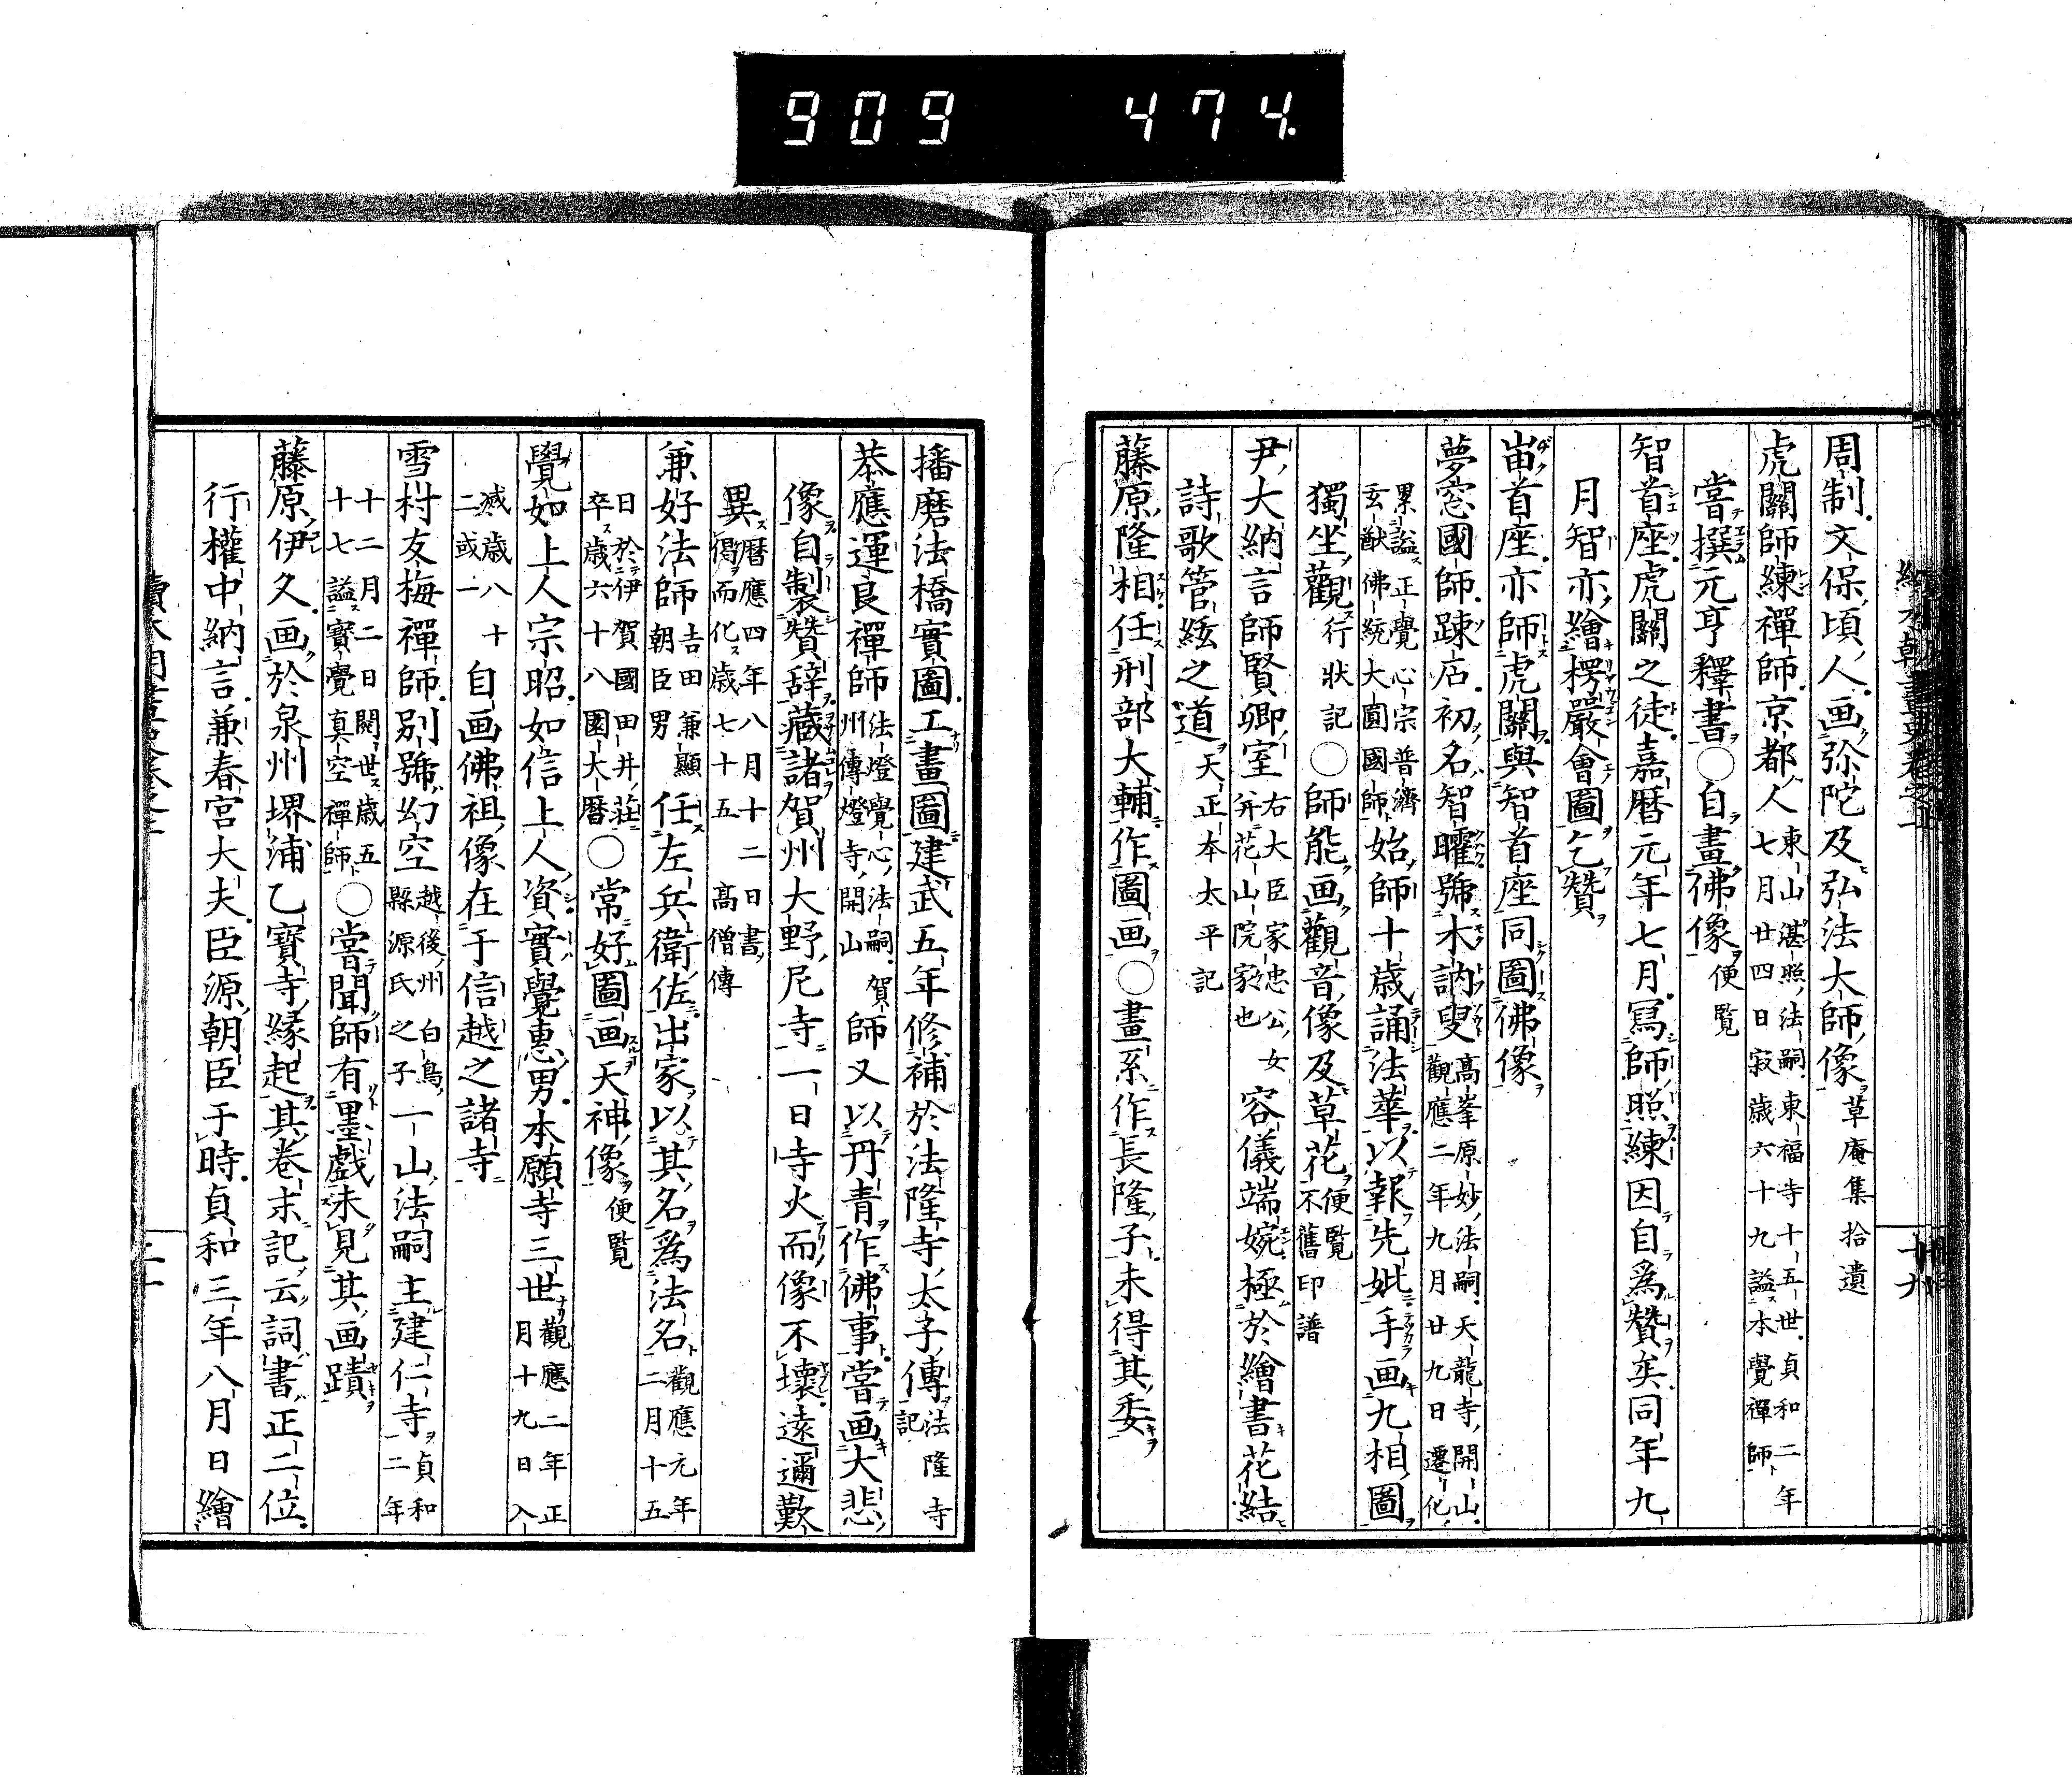 909 474.
周制文保頃人画弥陀及弘法大師像草庵集拾遺
虎關師練禪師京都人東山湛照法嗣東福寺十五世貞和二年七月廿四日寂歳六十九謚本覺禪師
嘗撰元亨釋書〇自畫佛像便覧
智首座虎關之徒嘉暦元年七月冩師照練因自爲贊矣同年九
月智亦繪楞嚴會圖乞贊
首座亦師虎關與智首座同圖佛像
夢窓國師踈石初名智曜號木訥叟高峯原妙法嗣天龍寺開山觀應二年九月廿九日遷化
累謚正覺心宗普濟玄猷佛統大圓國師始師十歳誦法華以報先妣手画九相圖
獨坐觀行状記〇師能画觀音像及草花便覧不舊印譜
尹大納言師賢卿室右大臣家忠公女并花山院家也容儀端婉極於繪書花結
詩歌管絃之道天正本太平記
藤原隆相任刑部大輔作圖画〇畫系作長隆子未得其委
播磨法橋實圓工畫圖建武五年修補於法隆寺太子傳法隆寺記
恭應運良禪師法燈覺心法嗣賀州傳燈寺開山師又以丹青作佛事嘗画大悲
像自製贊辞藏諸賀州大野尼寺一日寺火而像不壞遠邇歎
異暦應四年八月十二日書偈而化歳七十五高僧傳
兼好法師吉田兼顯朝臣男任左兵衛佐出家以其名爲法名觀應元年二月十五
日於伊賀國田井莊卒歳六十八園大暦〇常好圖画天神像便覧
覺如上人宗昭如信上人資實覺惠男本願寺三世觀應二年正月十九日入
滅歳八十二或一自画佛祖像在于信越之諸寺
雪村友梅禪師別號幻空越後州白鳥縣源氏之子一山法嗣主建仁寺貞和二年
十二月二日閲世歳五十七謚寳覺真空禪師〇嘗聞師有墨戲未見其画蹟
藤原伊久画於泉州堺浦乙寳寺縁起其巻末記云詞書正二位
行權中納言兼春宮大夫臣源朝臣于時貞和三年八月日繪